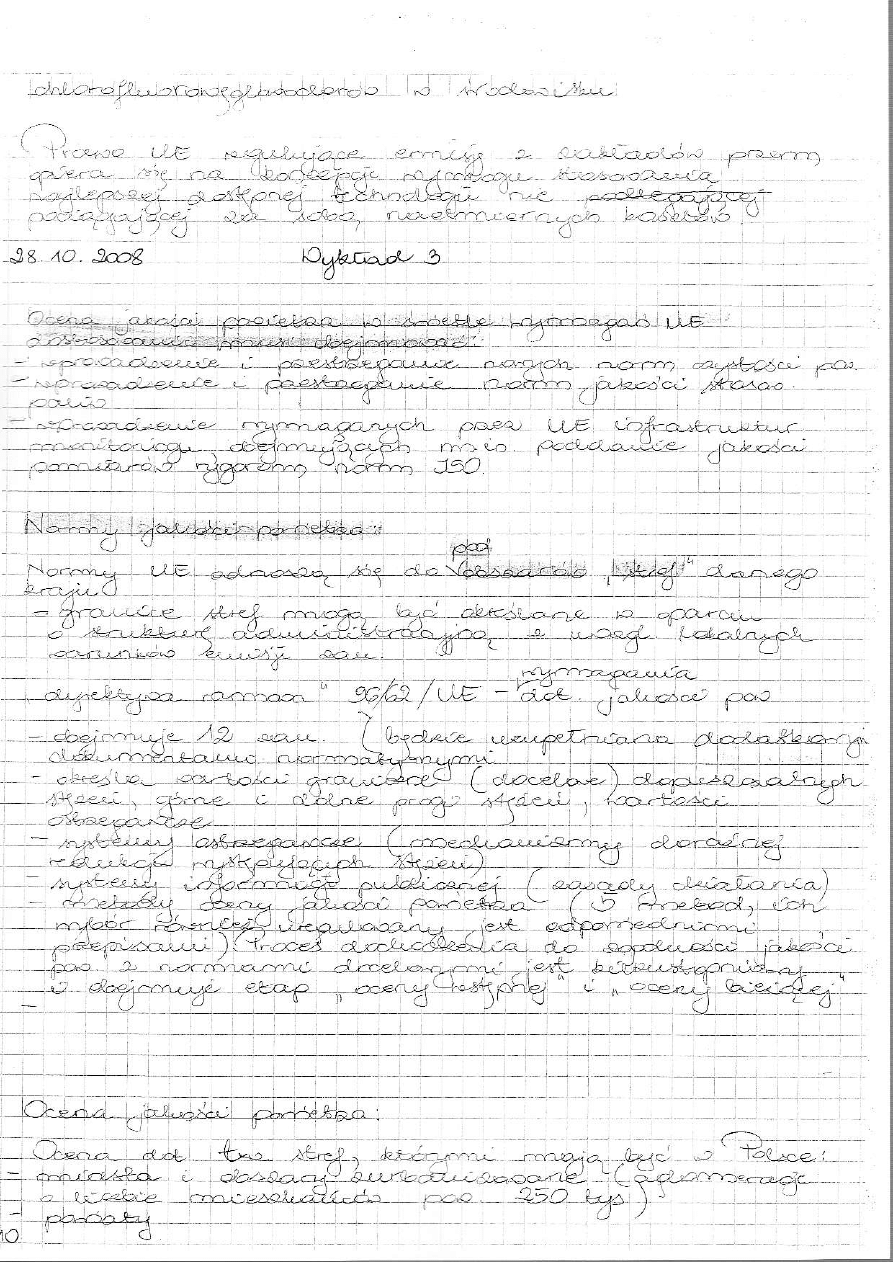 chlorofluorowęglowodorów w środowisku
Prawo UE regulujące emisję z zakładów przem.
opiera się na koncepcji wymogu stosowania
najlepszej dostępnej technologii nie podlegającej
pociągającej za sobą nadmiernych kosztów.
28.10.2008 Wykład 3
Ocena jakości powietrza w świetle wymagań UE
obejmować:
- wprowadzenie i przestrzeganie nowych norm czystości pow.
- wprowadzenie i przestrzeganie norm jakości stosow.
paliw
- wprowadzenie wymaganych przez UE infrastruktur
monitoringu, obejmujących m.in poddanie jakości
pomiarów rygorom norm ISO.
Normy jakości powietrza:
pod
Normy UE odnoszą się do obszarów "stref" danego
kraju
- granice stref mogą być określane w oparciu
o strukturę administracyjną z uwagi lokalnych
warunków emisji zan.
wymagania
dyrektywa ramowa" 96/62/UE - dot. jakości pow
- obejmuje 12 zan. (będzie uzupełniana dodatkowymi
dokumentami normatywnymi
- określa wartości graniczne (docelowe) dopuszczalnych
stężeń, górne i dolne progi stężeń, wartości
ostrzegawcze
- systemy ostrzegawcze (mechanizmy doraźnej
redukcji występujących stężeń)
- systemy informacji publicznej (zasady działania)
- metody oceny jakości powietrza (5 metod, ich
wybór również uregulowany jest odpowiednimi
przepisami) Proces dochodzenia do zgodności jakości
pow z normami docelowymi jest
i obejmuje etap "oceny wstępnej" i "oceny bieżącej"
-
Ocena jakości powietrza:
Ocena dot tzw stref, którymi mają być w Polsce:
- miasta i obszary zurbanizowane (aglomeracje
o liczbie mieszkańców pow 250 tys)
- powiaty
10